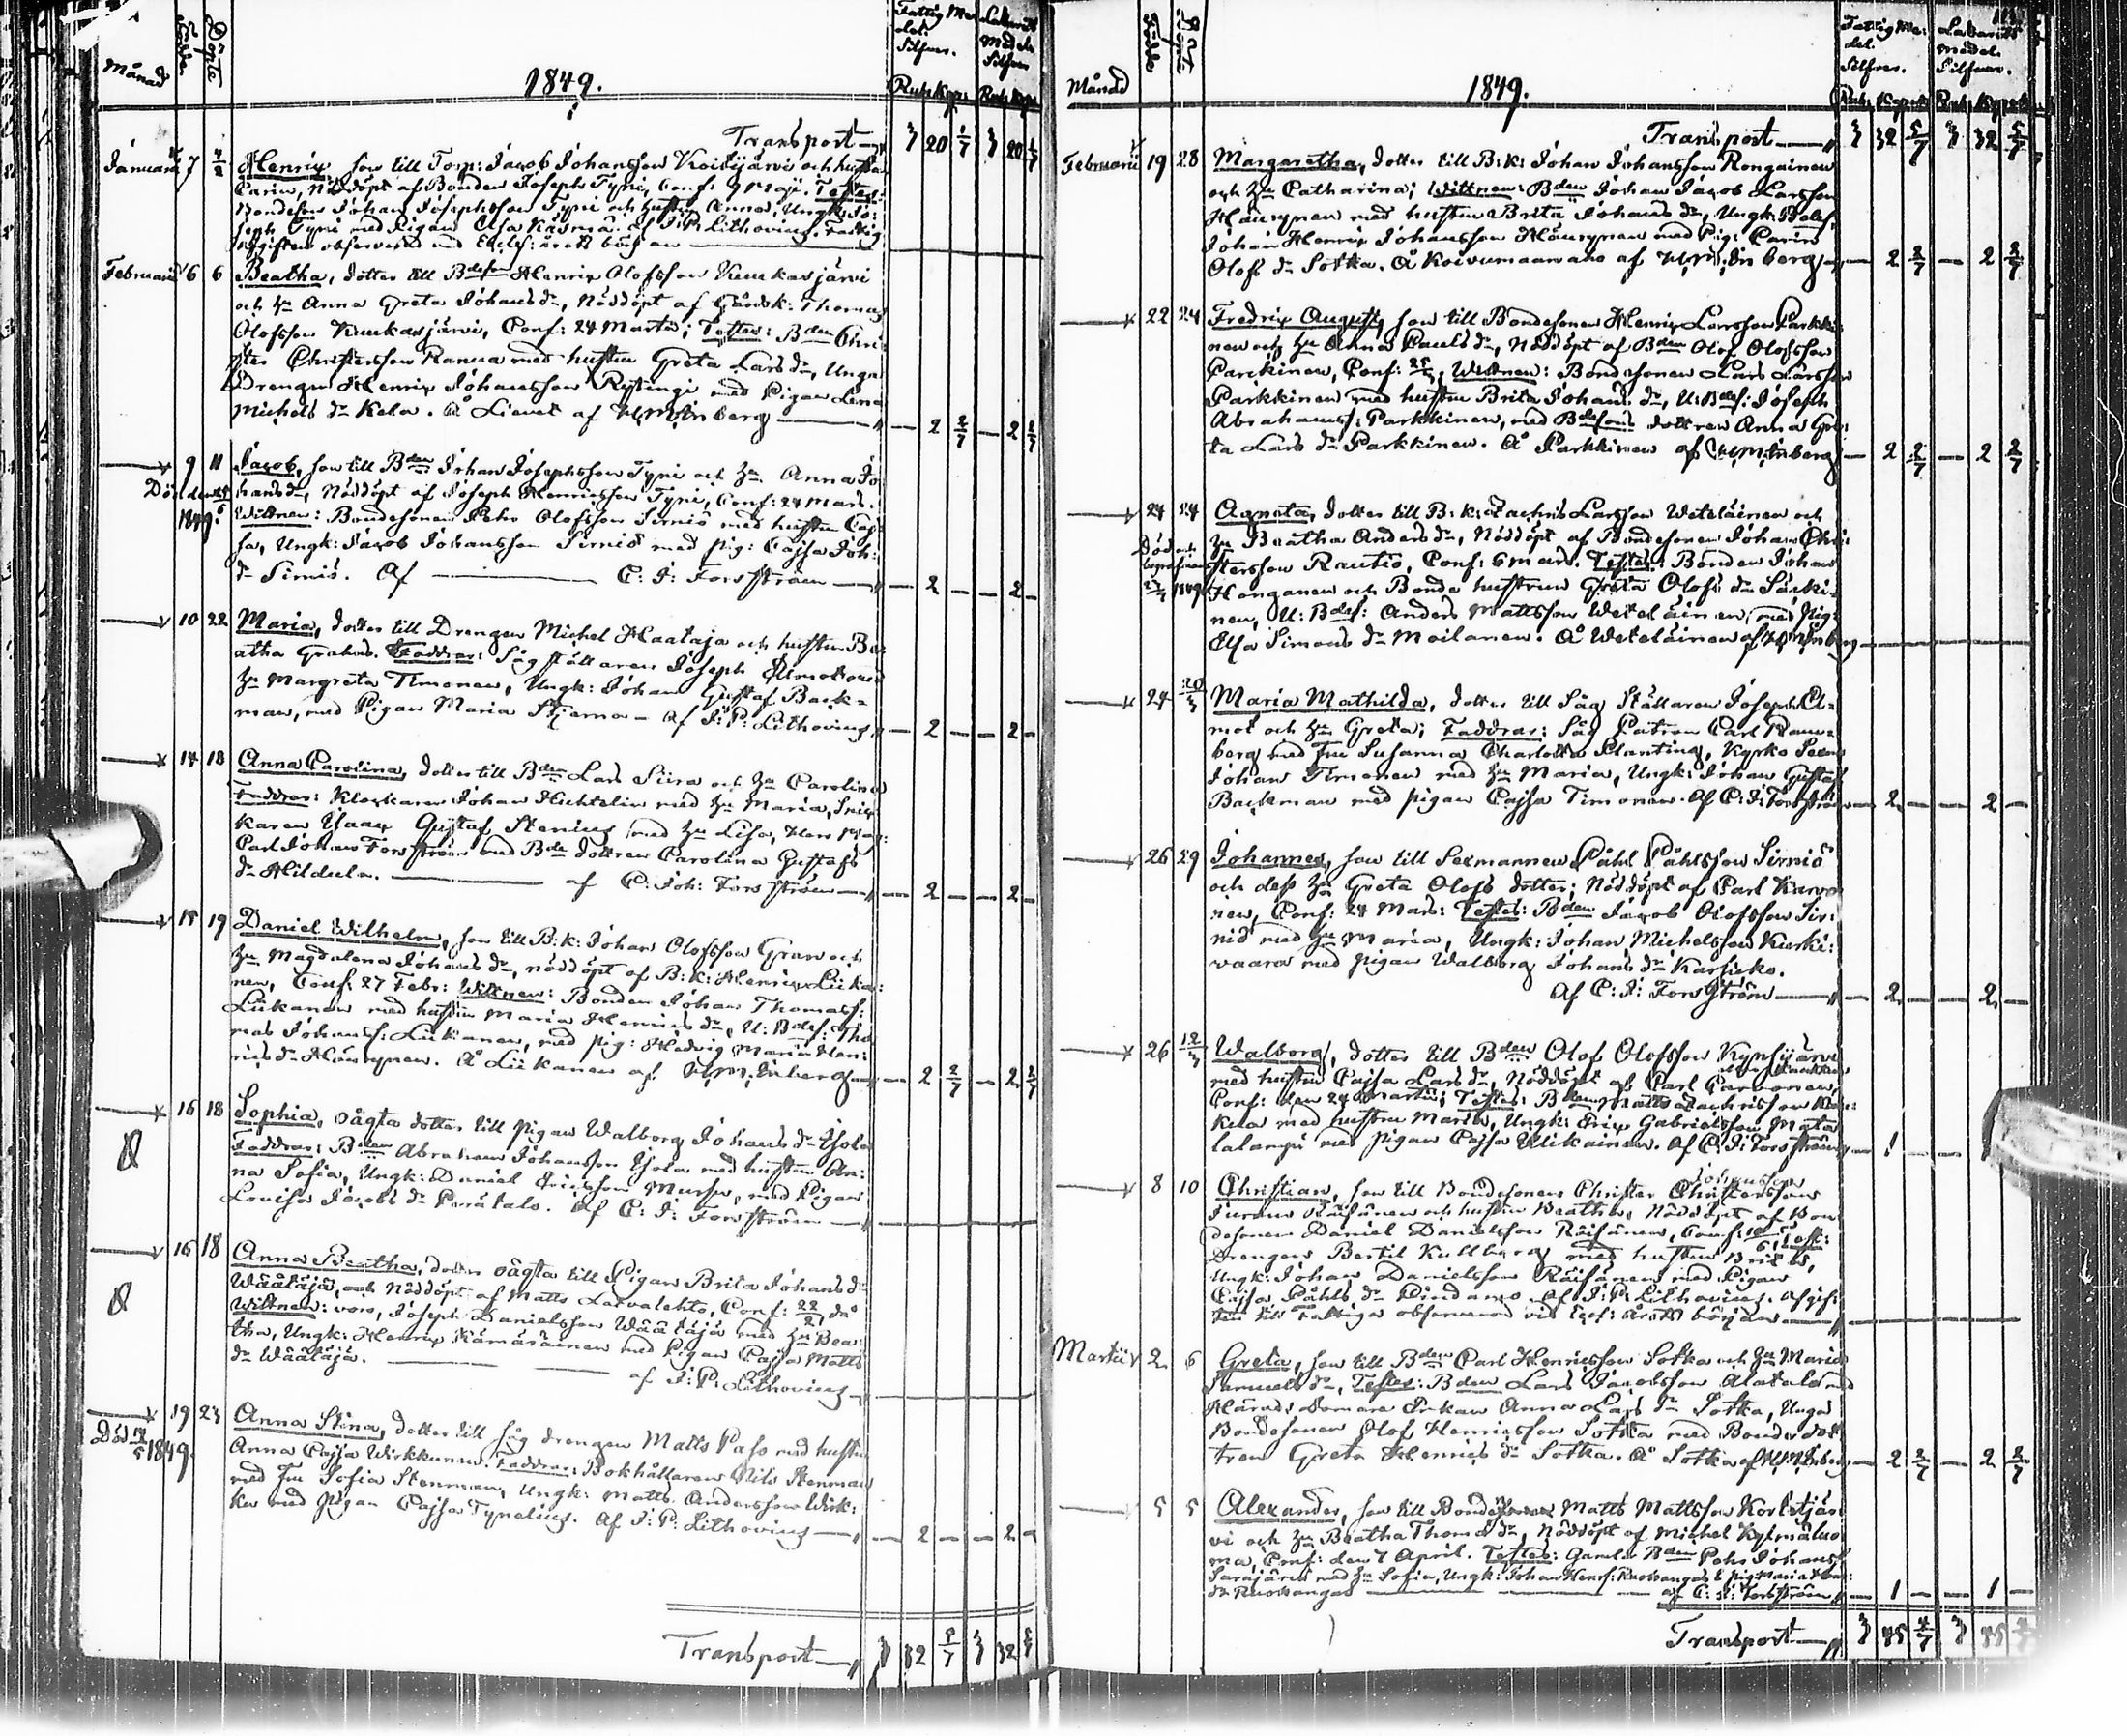 Månad Födde Döpte 1849. Fattig Me- Lazaretts
del. Medel.
Silfver. Silfver
Rub. Kop. Rub. Kop.
Transport 3 20 1/7 3 20 1/7
Januarii 7 Henrix, son till Torp: Jacob Johansson Koisijärvi och hustru
Carin, Nöddöpt af Bonden Joseph Tyni, Conf: Testes:
Bondeson Johan Josephsson Tyni och hustru Anna, Ungk: Jo-
seph Tyni med Pigan Käsmä. af J:P: Lithovius. Fattig
afgiften observerad vid början
Februarii 6 6 Beatha, dotter till Bdeson Henrix Olofsson Kuukasjärvi
och Hu Anna Greta Johansdr, Nöddöpt af Gårdsk: Thomas
Olofsson Kuukasjärvi, Conf: 24 Martii; Testes: Bden Chri-
ster Christersson Ranua med hustru Greta Larsdr, Unga
Drengen Henrix Johansson Rytingi med Pigan Lena
Michels dr Kela. Å Lievet af — 2 2/7 — 2 2/7
9 11 Jacob, son till Bden Johan Josephsson Tyni och Hu Anna Jo-
hansdr, Nöddöpt af Joseph Henricsson Tyni, Conf: 24 Mars.
1849. Wittnen: Bondesonen Pehr Olofsson Sirniö med hustru Caj-
sa, Ungk: Jacob Johansson Sirniö med pig: Cajsa Joh:
dr Sirniö. Af C: J: Forsström — 2 — — 2 —
10 22 Maria, dotter till Drengen Michel Haataja och hustru Be-
atha Faddrar: Sågställaren Joseph
Hu Margreta Timonen, Ungk: Johan Gustaf Back-
man, med Pigan Maria Stjerna – af J: P: Lithovius — 2 — — 2 —
14 18 Anna Carolina, dotter till Bden Lars Siira och Hu Carolina
Faddrar: Klockaren Johan med Hu Maria, Snic-
karen Isaac Gustaf Stenius med Hu Lisa,
Carl Johan Forsström med Bde dottren Carolina Gustafs
dr Hildula. af C: Joh: Forsström — 2 — — 2 —
15 19 Daniel Wilhelm, son till B: k: Johan Olofsson Gran och
Hu Magdalena Johansdr, nöddöpt af B: k: Henrix Liika-
nen, Conf: 27 Febr: Wittnen: Bonden Johan Thomass:
Liikanen med hustru Maria Henricsdr, U: Bdes: Tho-
mas Johanss: Liikanen, med pig: Hedvig Maria Hen-
ricsdr Hourynen. Å Liikanen af — 2 2/7 — 2 2/7
16 18 Sophia, oägta dotter till pigan Walborg Johans dr Ysola
Faddrar: Bden Abraham Johansson Ysola med hustru An-
na Sofia, Ungk: Daniel Ericsson Mursu, med Pigan
Lovisa Jacobs dr Perätalo. Af C: J: Forsström
16 18 Anna Beatha, dotter oägta till Pigan Brita Johansdr
Wäätäjä, och Nöddöpt af Matts Latvalehto, Conf:
Wittnen: Joseph Danielsson Wäätäjä med Hu Bea-
tha, Ungk: Henrix Kämäräinen med Pigan Cajsa Matts
dr Wäätäjä. af J: P: Lithovius
19 23 Anna Stina, dotter till Såg drengen Matts Paso med hustru
Död 1849. Anna Cajsa Wirkkunen. Faddrar: Bokhållaren Nils Stenman
med Fru Sofia Stenman, Ungk: Matts Andersson Wirk-
ku med pigan Cajsa Tynelius. Af J: P: Lithovius — 2 — — 2 —
Transport 3 32 5/7 3 32 5/7
Månad 1849. Fattig Me- Lazaretts
del. medel.
Silfver. Silfver.
Rub. Kopek Rub. Kopek
Transport 3 32 5/7 3 32 5/7
Februarii 19 28 Margaretha, dotter till B: k: Johan Johansson Rongainen
och Hu Catharina; Wittnen: Bden Johan Jacob Larsson
Hourynen med hustru Brita Johans dr, Ungk: Bdes:
Johan Henrix Johansson Hourynen med Pig: Carin
Olofs dr Sotka. Å Koivumaanaho af — 2 2/7 — 2 2/7
22 24 Fredrix August, son till Bondesonen Henrix Larsson Parkki-
nen och Hu Anna Paulsdr, Nöddöpt af Bden Olof Olofsson
Parkkinen, Conf: Wittnen: Bondesonen Lars Larsson
Parkkinen med hustru Brita Johans dr, U: Bdes: Joseph
Abrahams: Parkkinen, med Bdesons dottren Anna Gre-
ta Lars dr Parkkinen. Å Parkkinen af — 2 2/7 — 2 2/7
24 24 Agneta, dotter till B: k: Zachris Larsson Weteläinen och
Död och Hu Beatha Anders dr, Nöddöpt af Bondesonen Johan Chri-
begrafven stersson Rautio, Conf: 6 mars. Testes: Bonden Johan
1849 Honganen och Bonde hustrun Greta Olofs dr Särki-
nen, U: Bdes: Anders Mattsson Weteläinen, med Pig:
Elsa Simons dr Moilanen. Å Weteläinen af
24 20/3 Maria Mathilda, dotter till Såg Ställaren Joseph El-
mot och Hu Greta; Faddrar: Såg Patron Carl Rans-
berg med Fru Susanna Charlotta Planting, Kyrko
Johan Timonen med Hu Maria, Ungk: Johan Gustaf
Backman med pigan Cajsa Timonen. Af C: J: Forsström — 2 — — 2 —
26 29 Johannes, son till Sexmannen Påhl Påhlsson Sirniö
och dess Hu Greta Olofs dotter; Nöddöpt af Carl Karvo-
nen, Conf: 24 Mars: Testes: Bden Jacob Olofsson Sir-
niö med Hu Maria, Ungk: Johan Michelsson Kurki-
vaara med pigan Walborg Johans dr Karsicko.
Af C: J: Forsström — 2 — — 2 —
26 12/3 Walborg, dotter till Bden Olof Olofsson Kynsijärvi
med hustru Cajsa Lars dr, Nöddöpt af Carl Carvonen,
Conf: den 24 Martii; Testes: Bden Matts Zachrisson
kela med hustru Maria, Ungk: Erix Gabrielsson Mata-
lalampi med Pigan Cajsa Ulikainen. Af C: J: Forsström — 1 — —
8 10 Christian, son till Bondesonen Christer Christersson
Räisänen och hustru Beatha, Nöddöpt af Bon-
desonen Daniel Danielsson Räisänen, Conf:
Drengen Bertil Kullberg med hustru Brita,
Ungk: Johan Danielsson Räisänen med Pigan
Cajsa Påhls dr Pindamo. Af J: P: Lithovius. Afgif-
ten till Fattiga observerad vid början
Martii 2 6 Greta, son till Bden Carl Henricsson Sotka och Hu Maria
Samuelsdr, Testes: Bden Lars Jacobsson Alatalo med
Härads Domare Enkan Anna Lars dr Sotka, Unga
Bondesonen Olof Henricsson Sotka med Bonde dot-
tren Greta Henrics dr Sotka. Å Sotka af — 2 2/7 — 2 2/7
5 5 Alexander, son till Bonden Matts Mattsson Korkstjär-
vi och Hu Beatha Thomas dr, Nöddöpt af Michel Kylmäluo-
ma, Conf: den 7 April. Testes: Gamle Bden Pehr Johanss:
Sarajärvi med Hu Sofia, Ungk: Johan Henrs: Ruokangas & pig Maria
dr Ruokangas af C: J: Forsström — 1 — — 1 —
Transport 3 45 3 45